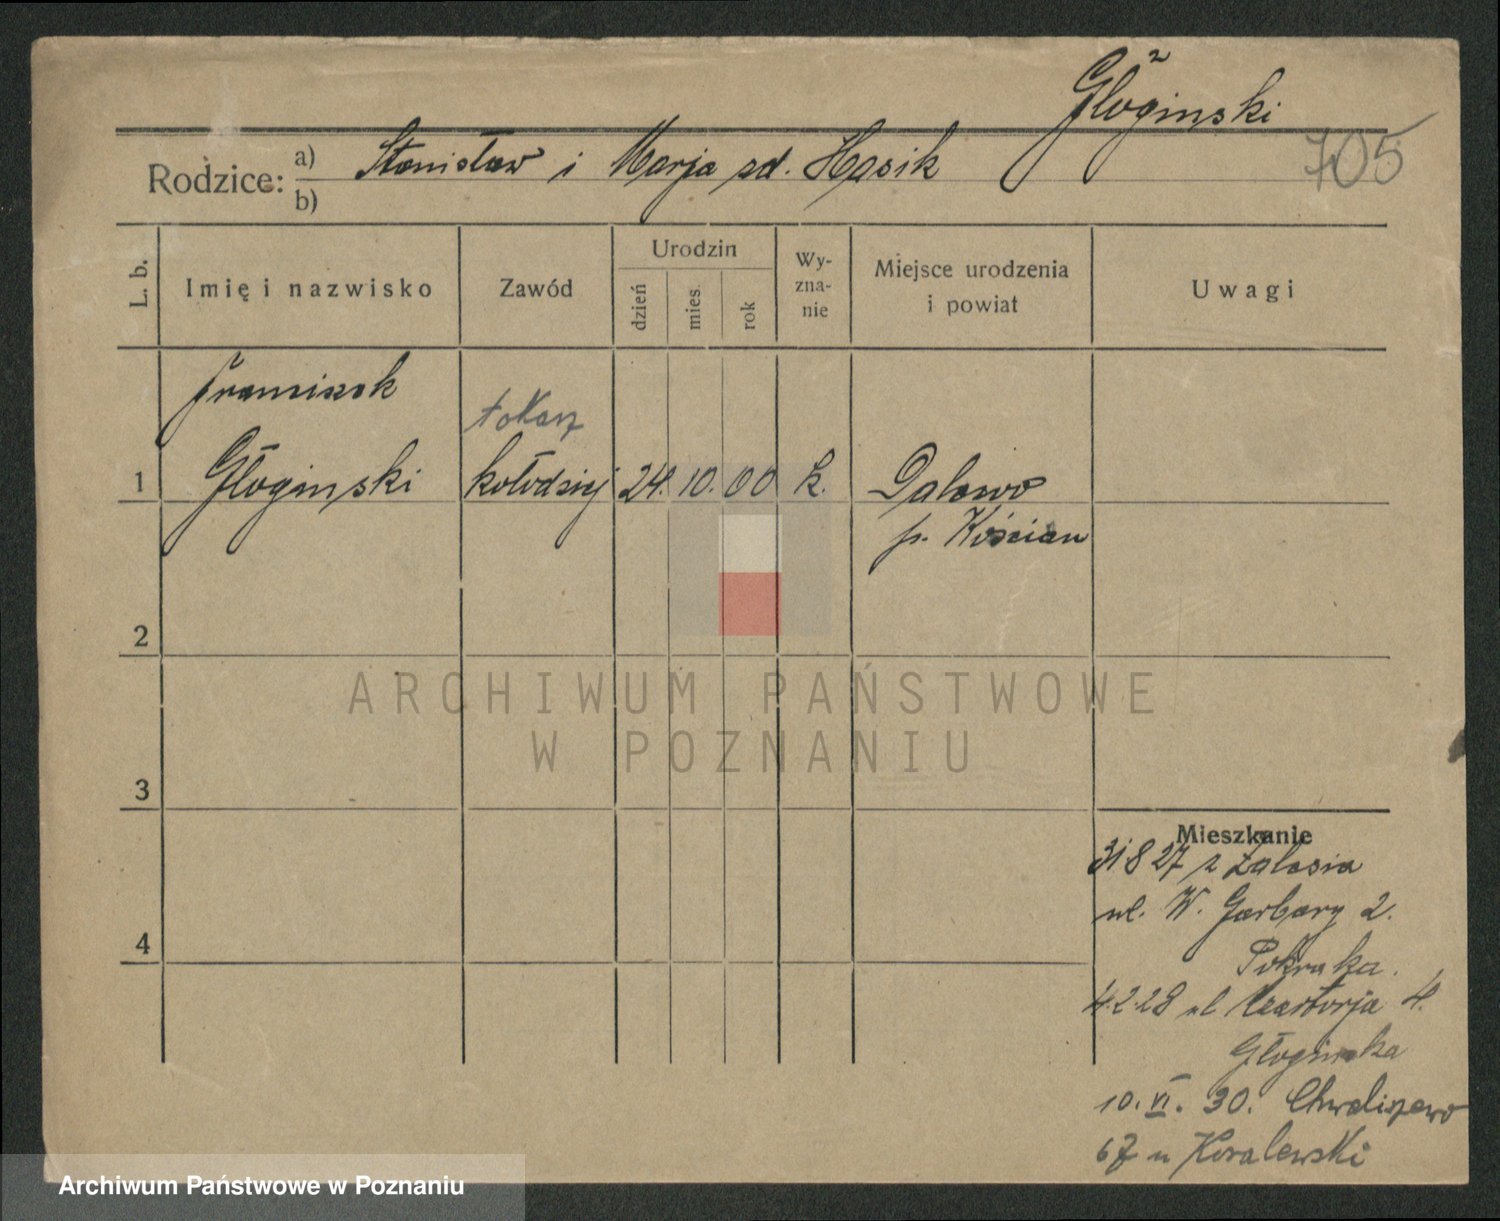 Głoginski
705
Rodzice: a) Stanisław i Marja zd. Hasik
b)
L. b.
Imię i nazwisko
Zawód
Urodzin
dzień
mies.
rok
Wy-
zna-
nie
Miejsce urodzenia
i powiat
Uwagi
Franciszek
tokarz
1 Głoginski kołodziej 24. 10. 00 k. Dalewo
p. Kościan
2
3
4
Mieszkanie
31 8 27 z Zalesia
ul. W. Garbary 2.
Pokraka.
4.2.28 ul Czartorja 4.
Głoginska
10. VI. 30. Chwaliszewo
67 u Kowalewski
ARCHIWUM PAŃSTWOWE
W POZNANIU
Archiwum Państwowe w Poznaniu